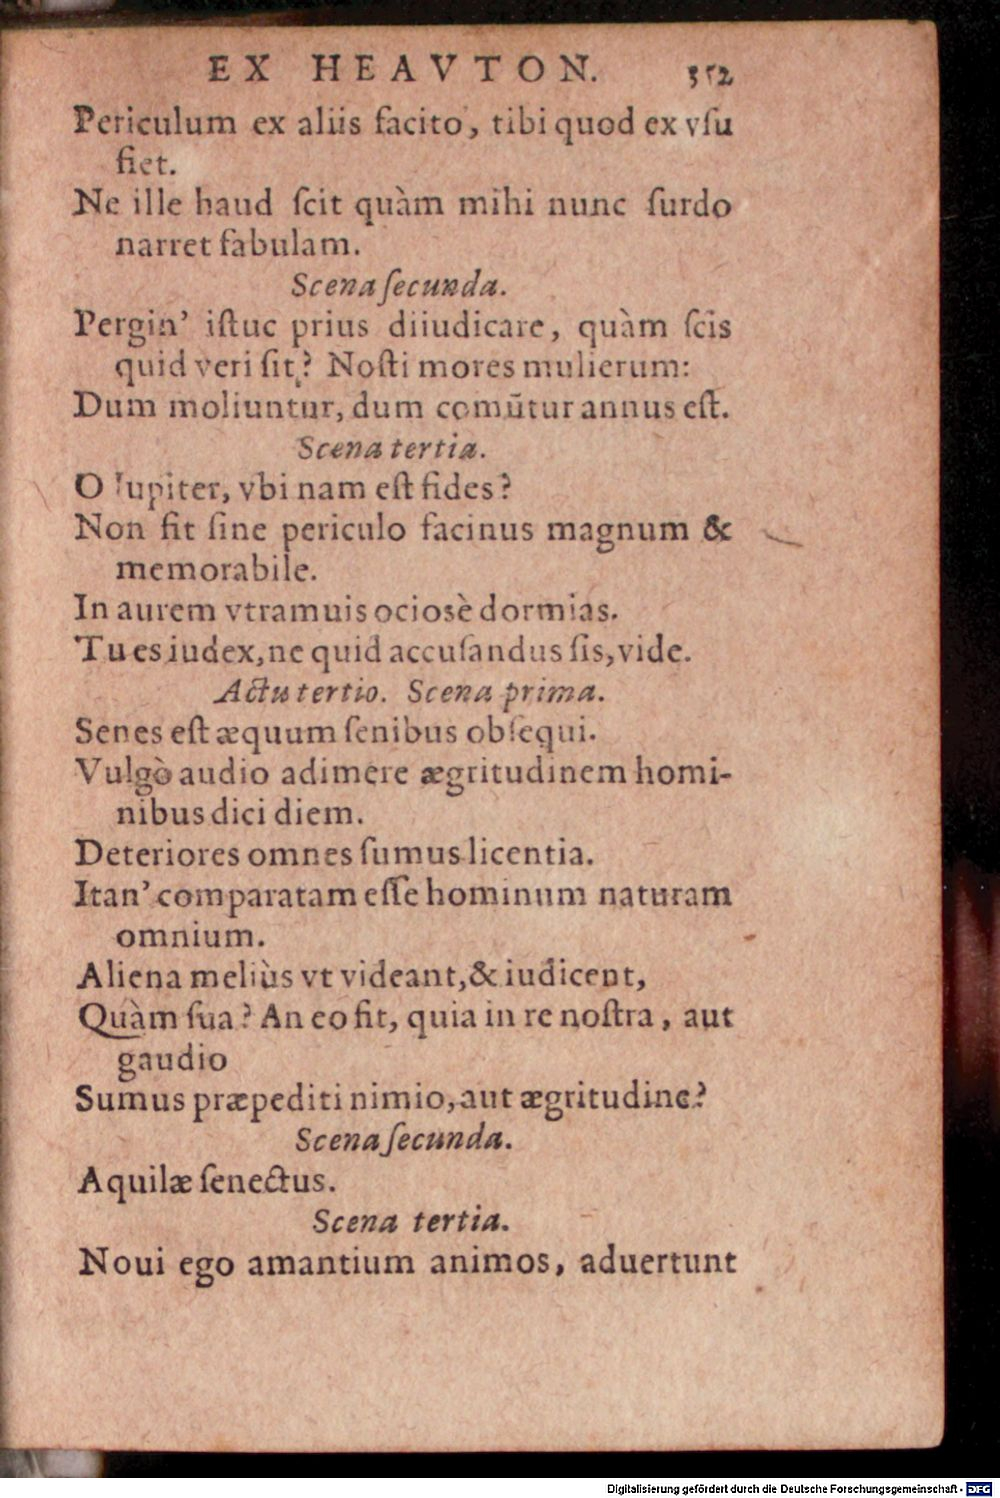 EX HEAVTON. 352
Periculum ex aliis facito, tibi quod ex vſu
fiet.
Ne ille haud ſcit quàm mihi nunc ſurdo
narret fabulam.
Scena ſecunda.
Pergin' iſtuc prius diiudicare, quàm ſcis
quid veri ſit? Noſti mores mulierum:
Dum moliuntur, dum comũtur annus eſt.
Scena tertia.
O Iupiter, vbi nam eſt fides?
Non fit ſine periculo facinus magnum &
memorabile.
In aurem vtramuis ociosè dormias.
Tu es iudex, ne quid accuſandus ſis, vide.
Actu tertio. Scena prima.
Senes eſt æquum ſenibus obſequi.
Vulgò audio adimere ægritudinem homi-
nibus dici diem.
Deteriores omnes ſumus licentia.
Itan' comparatam eſſe hominum naturam
omnium.
Aliena meliùs vt videant, & iudicent,
Quàm ſua? An eo fit, quia in re noſtra, aut
gaudio
Sumus præpediti nimio, aut ægritudine?
Scena ſecunda.
Aquilæ ſenectus.
Scena tertia.
Noui ego amantium animos, aduertunt
Digitalisierung gefördert durch die Deutsche Forschungsgemeinschaft - DFG